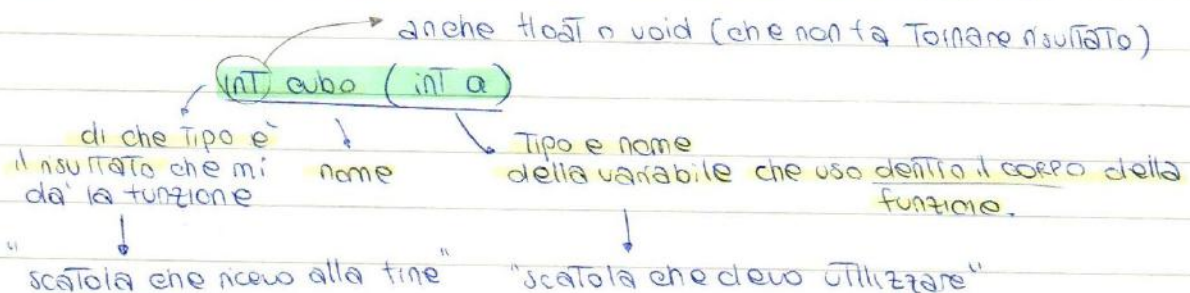 anche float o void (che non fa tornare risultato)
int cubo (int a)
di che tipo è
il risultato che mi
dà la funzione
nome
tipo e nome
della variabile che uso dentro il corpo della
funzione.
"scatola che ricevo alla fine"
"scatola che devo utilizzare"